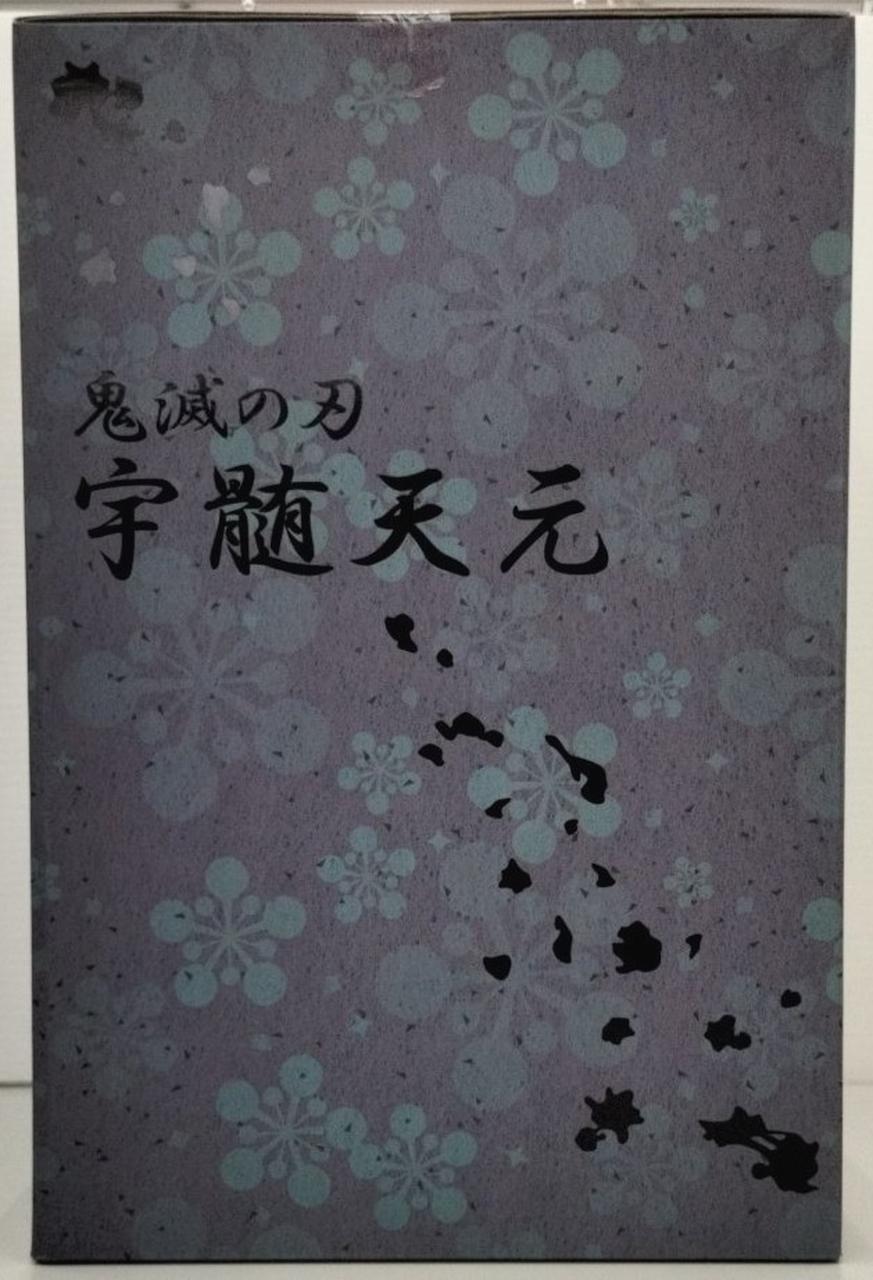 鬼滅の刃
宇髄天元